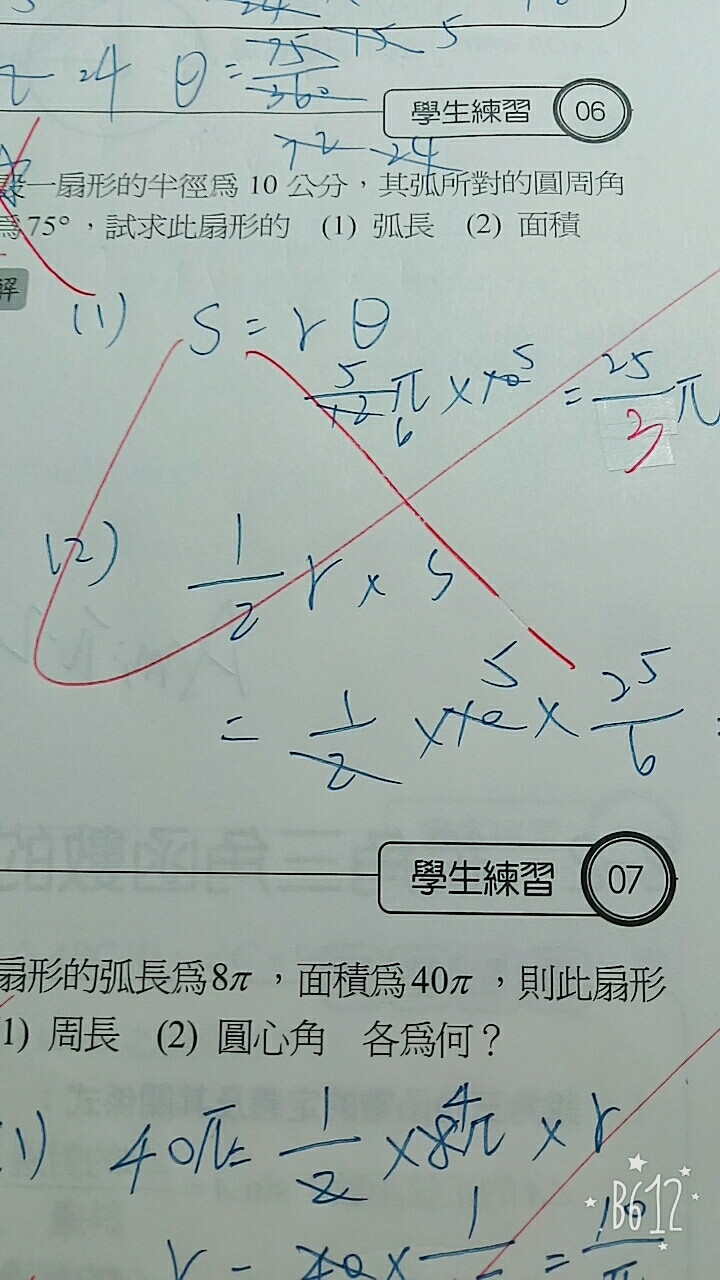 24 θ = 75/360 15 5
72 24
學生練習 06
設一扇形的半徑為 10 公分，其弧所對的圓周角
為 75°，試求此扇形的 (1) 弧長 (2) 面積
解
(1) S = r θ
5/12 π 6 × 10 5 = 25/3 π
(2) 1/2 r × S
= 1/2 × 10 5 × 25/6 =
學生練習 07
扇形的弧長為 8π，面積為 40π，則此扇形
(1) 周長 (2) 圓心角 各為何？
(1) 40π = 1/2 × 8π 4 × r
B612